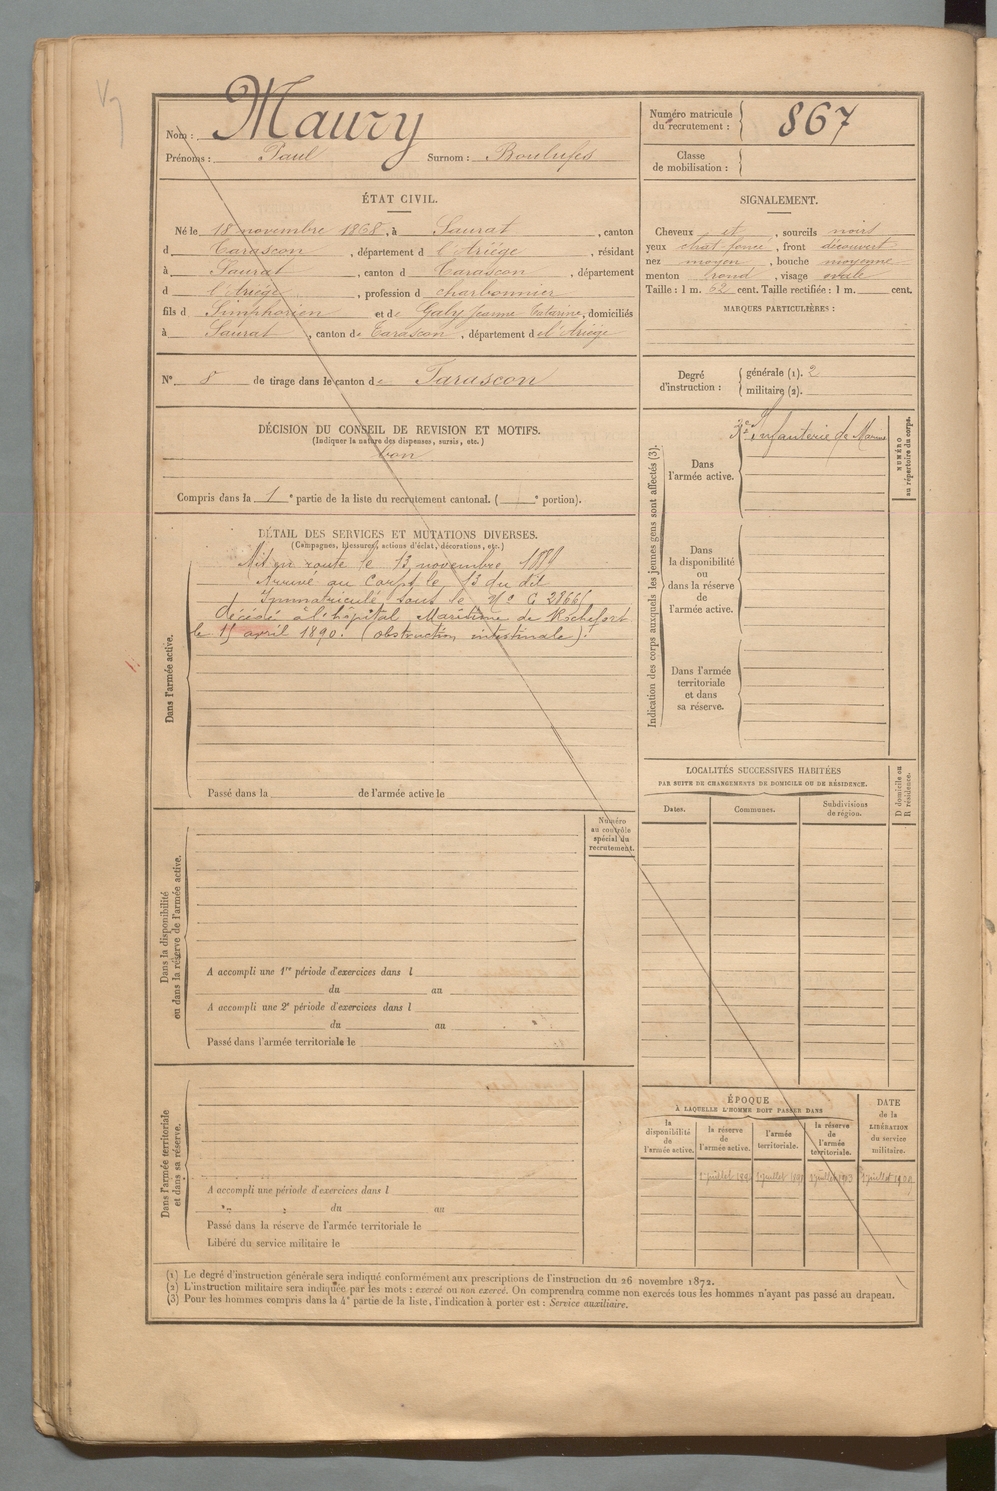 Nom : Maury
Prénoms : Paul Surnom : Boulufés
Numéro matricule du recrutement : 867
Classe de mobilisation :
ÉTAT CIVIL.
Né le 18 novembre 1868, à Saurat, canton
d Tarascon, département d l'Ariége, résidant
à Saurat, canton d Tarascon, département
d l'Ariége, profession d charbonnier
fils d Simphorien et de Galy Jeanne Catarine, domiciliés
à Saurat, canton de Tarascon, département de l'Ariége
SIGNALEMENT.
Cheveux et, sourcils noirs
yeux chat. foncé, front découvert
nez moyen, bouche moyenne
menton rond, visage ovale
Taille : 1 m. 62 cent. Taille rectifiée : 1 m. cent.
MARQUES PARTICULIÈRES :
N° 8 de tirage dans le canton de Tarascon
Degré d'instruction : générale (1). 2
militaire (2).
DÉCISION DU CONSEIL DE REVISION ET MOTIFS.
(Indiquer la nature des dispenses, sursis, etc.)
bon
Compris dans la 1e partie de la liste du recrutement cantonal. ( e portion).
DÉTAIL DES SERVICES ET MUTATIONS DIVERSES.
(Campagnes, blessures, actions d'éclat, décorations, etc.)
Dans l'armée active.
Mis en route le 13 novembre 1889
Arrivé au Corps le 13 du dit
Immatriculé sous le N°
Décédé à l'hôpital Maritime de Rochefort
le avril 1890. (obstruction intestinale).
Passé dans la de l'armée active le
Indication des corps auxquels les jeunes gens sont affectés (3).
Infanterie de Marine
Dans l'armée active.
Dans la disponibilité ou dans la réserve de l'armée active.
Dans l'armée territoriale et dans sa réserve.
NUMÉRO au répertoire du corps.
LOCALITÉS SUCCESSIVES HABITÉES
PAR SUITE DE CHANGEMENTS DE DOMICILE OU DE RÉSIDENCE.
Dates. Communes. Subdivisions de région.
D domicile ou R résidence.
Dans la disponibilité ou dans la réserve de l'armée active.
Numéro au contrôle spécial du recrutement.
A accompli une 1re période d'exercices dans l
du au
A accompli une 2e période d'exercices dans l
du au
Passé dans l'armée territoriale le
Dans l'armée territoriale et dans sa réserve.
A accompli une période d'exercices dans l
du au
Passé dans la réserve de l'armée territoriale le
Libéré du service militaire le
ÉPOQUE
À LAQUELLE L'HOMME DOIT PASSER DANS
la disponibilité de l'armée active.
la réserve de l'armée active.
l'armée territoriale.
la réserve de l'armée territoriale.
DATE de la LIBÉRATION du service militaire.
(1) Le degré d'instruction générale sera indiqué conformément aux prescriptions de l'instruction du 26 novembre 1872.
(2) L'instruction militaire sera indiquée par les mots : exercé ou non exercé. On comprendra comme non exercés tous les hommes n'ayant pas passé au drapeau.
(3) Pour les hommes compris dans la 4e partie de la liste, l'indication à porter est : Service auxiliaire.